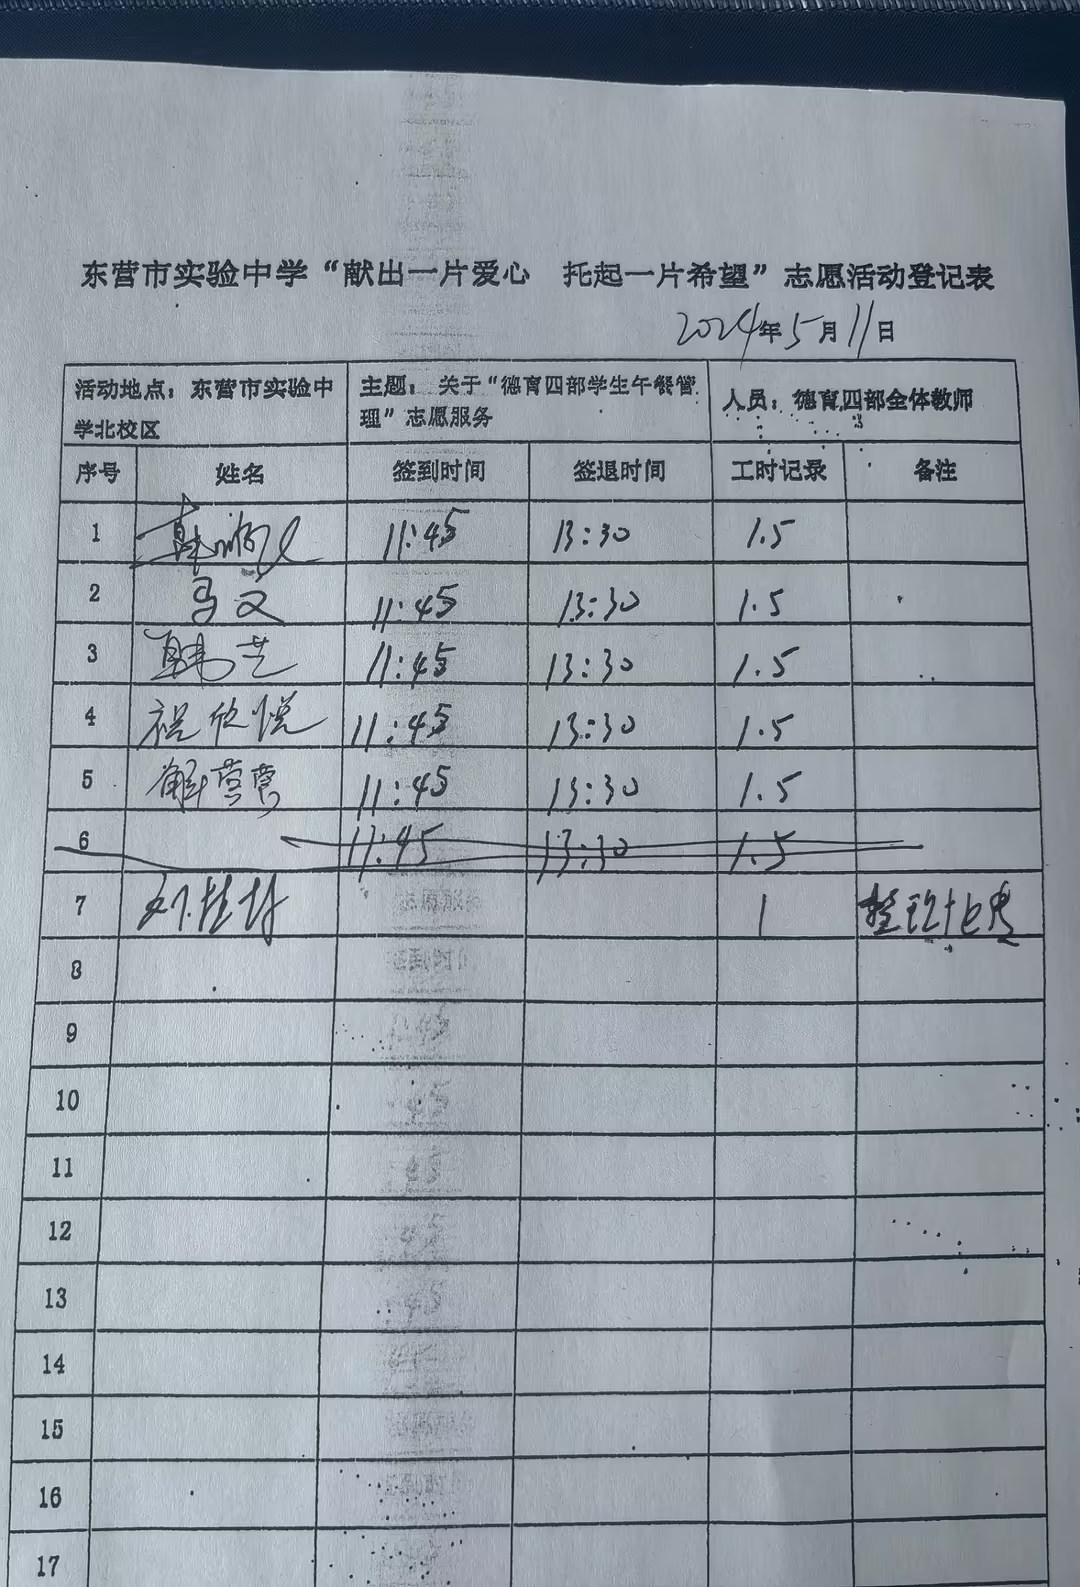 东营市实验中学“献出一片爱心 托起一片希望”志愿活动登记表
2024年5月11日
活动地点：东营市实验中学北校区 主题：关于“德育四部学生午餐管理”志愿服务 人员：德育四部全体教师
序号 姓名 签到时间 签退时间 工时记录 备注
1 11:45 13:30 1.5
2 马文 11:45 13:30 1.5
3 韩艺 11:45 13:30 1.5
4 祝欣悦 11:45 13:30 1.5
5 解莹莹 11:45 13:30 1.5
6 11:45 13:30 1.5
7 1 整理
8
9
10
11
12
13
14
15
16
17